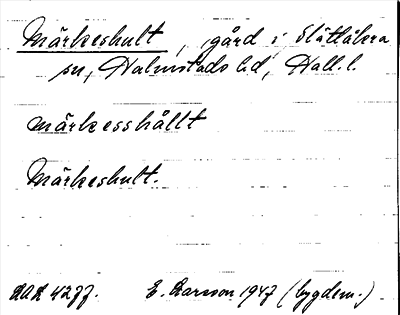 Märkeshult, gård i Slättåkra
sn, Halmstads hd, Hall. l.
märkesshållt
Märkeshult.
DAL 4277. E. Larsson 1947 (bygdem.)